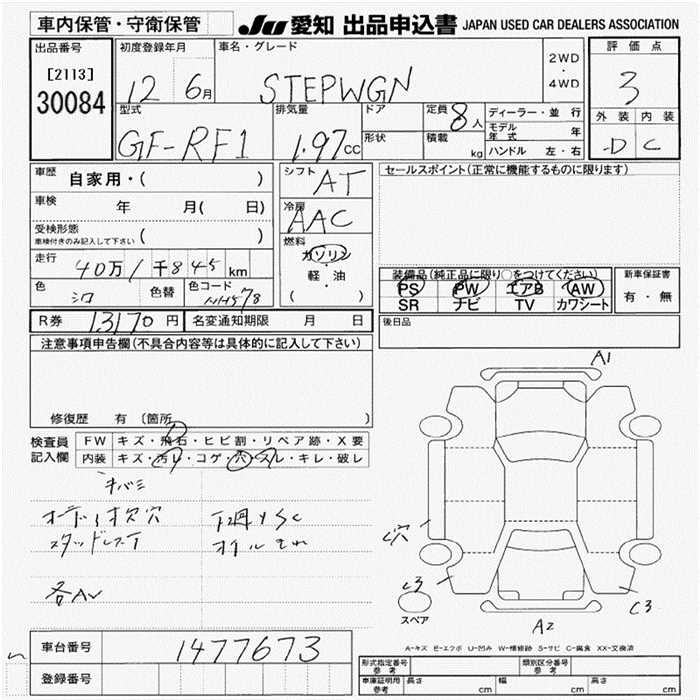 車内保管・守衛保管
JU 愛知 出品申込書 JAPAN USED CAR DEALERS ASSOCIATION
出品番号
[2113]
30084
初度登録年月
12 6月
車名・グレード
STEPWGN
2WD
・
4WD
評価点
3
外装 内装
-D C
型式
GF-RF1
排気量
1.97 cc
ドア
形状
定員 8人
積載 kg
ディーラー・並行
モデル年式 年
ハンドル 左・右
車歴 自家用・( )
車検 年 月( 日)
受検形態
車検付きのみ記入して下さい ( )
走行 40万/千845 km
色 シロ 色替 色コード NH578
シフト AT
冷房 AAC
燃料
ガソリン
・
軽・油
( )
セールスポイント(正常に機能するものに限ります)
装備品(純正品に限り○をつけてください)
PS PW エアB AW
SR ナビ TV カワシート
新車保証書
有・無
R券 13170円 名変通知期限 月 日
後日品
注意事項申告欄(不具合内容等は具体的に記入して下さい)
修復歴 有〔箇所 〕
検査員記入欄
FW キズ・飛石・ヒビ割・リペア跡・X要
内装 キズ・汚レ・コゲ・穴・スレ・キレ・破レ
キバミ
スタッドレスT
各AV
A1
C穴
C3
C3
A2
スペア
A-キズ E-エクボ U-凹み W-補修跡 S-サビ C-腐食 XX-交換済
車台番号 1477673
登録番号
形式指定番号 参考
類別区分番号 参考
車庫証明用 参考 長さ cm 幅 cm 高さ cm